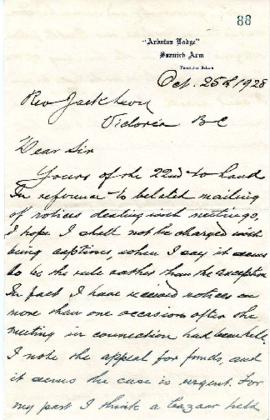 88
"Arbutus Lodge"
Saanich Arm
Oct. 25th 1928
Rev Jack
Victoria B C
Dear Sir
Yours of the 22nd to hand
In reference to belated mailing
of notices dealing with meetings,
I hope I shall not be charged with
being captious, when I say it seems
to be the rule rather than the exception
In fact I have received notices on
more than one occasion after the
meeting in connection had been held.
I note the appeal for funds, and
it seems the case is urgent. For
my part I think a bazaar held